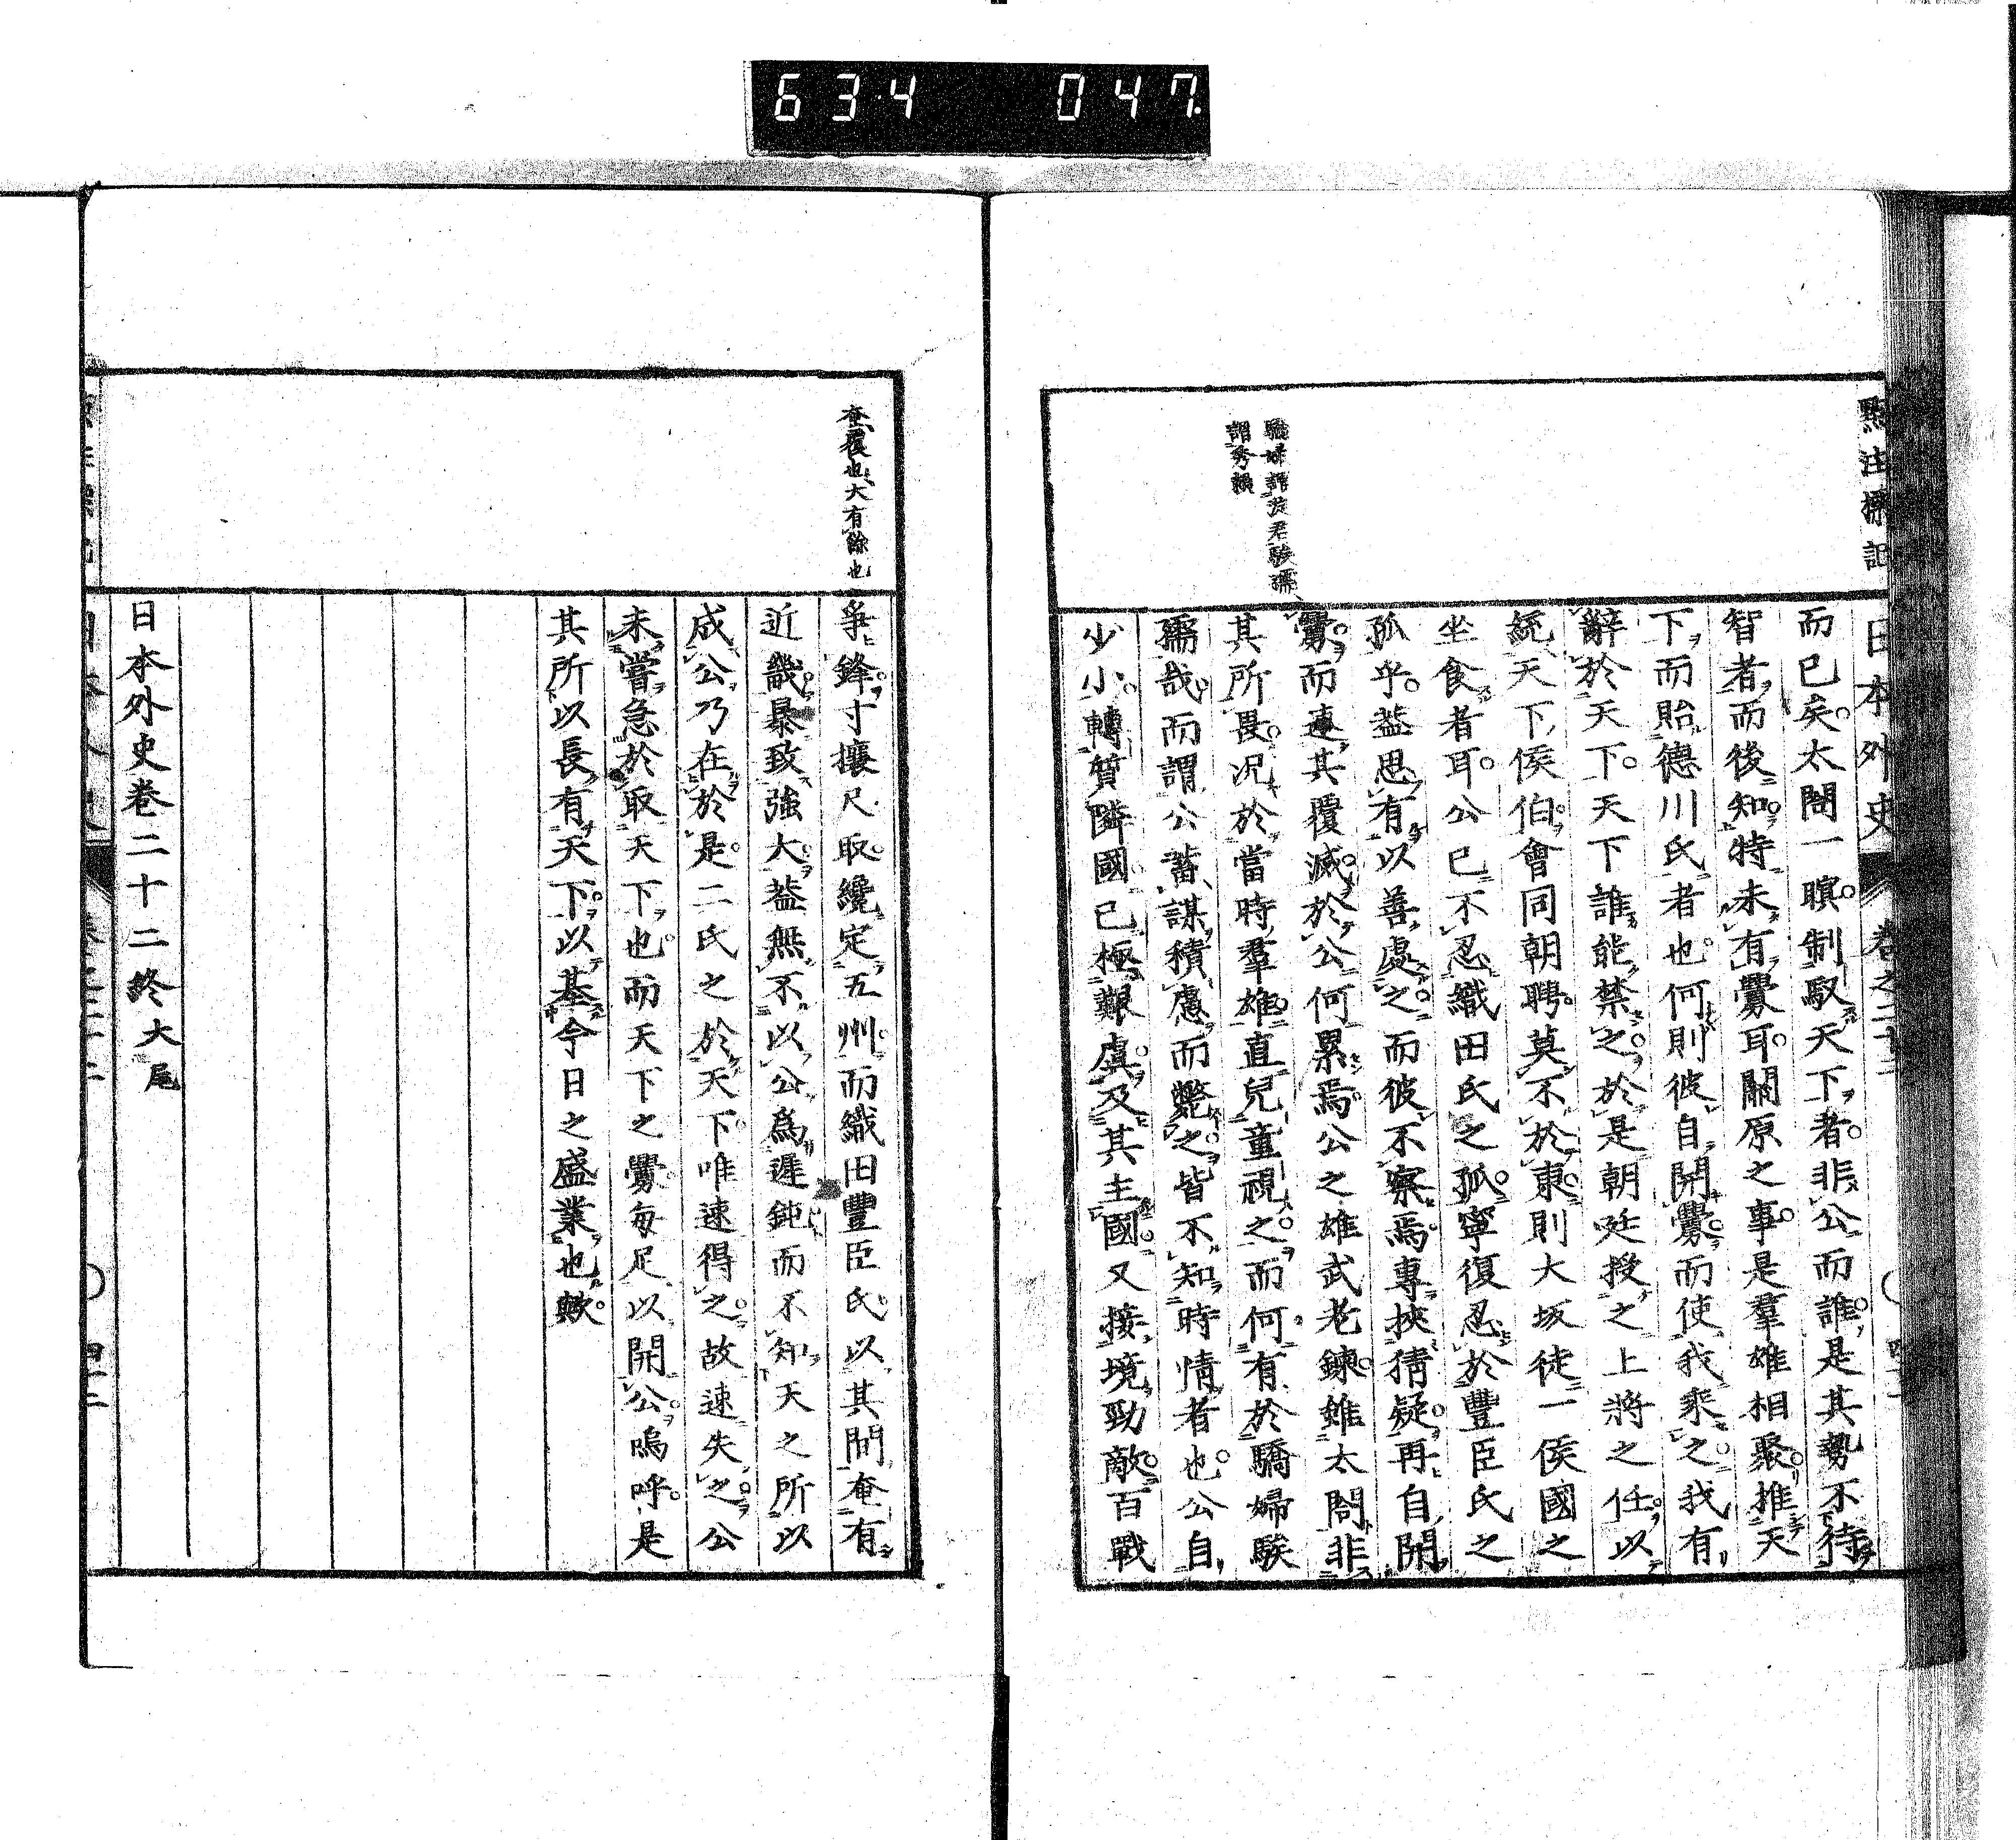 634 047
點注標記
日本外史 卷之二十二
驕婦謂茂君騃孺
謂秀賴
而已矣太閤一瞑制馭天下者非公而誰是其勢不待
智者而後知特未有釁耳關原之事是羣雄相聚推天
下而貽德川氏者也何則彼自開釁而使我乘之我有
辭於天下天下誰能禁之於是朝廷授之上將之任以
統天下侯伯會同朝聘莫不於東則大坂徒一侯國之
坐食者耳公已不忍織田氏之孤寧復忍於豐臣氏之
孤乎蓋思有以善處之而彼不察焉專挾猜疑再自開
釁而速其覆滅於公何累焉公之雄武老鍊雖太閤非
其所畏况於當時羣雄直兒童視之而何有於驕婦騃
孺哉而謂公蓄謀積慮而斃之皆不知時情者也公自
少小轉質隣國已極艱虞及其主國又接境勁敵百戰
奄覆也大有餘也
爭鋒寸攘尺取纔定五州而織田豐臣氏以其間奄有
近畿暴致強大蓋無不以公爲遲鈍而不知天之所以
成公乃在於是二氏之於天下唯速得之故速失之公
未嘗急於取天下也而天下之釁每足以開公嗚呼是
其所以長有天下以基今日之盛業也歟
日本外史卷二十二終大尾